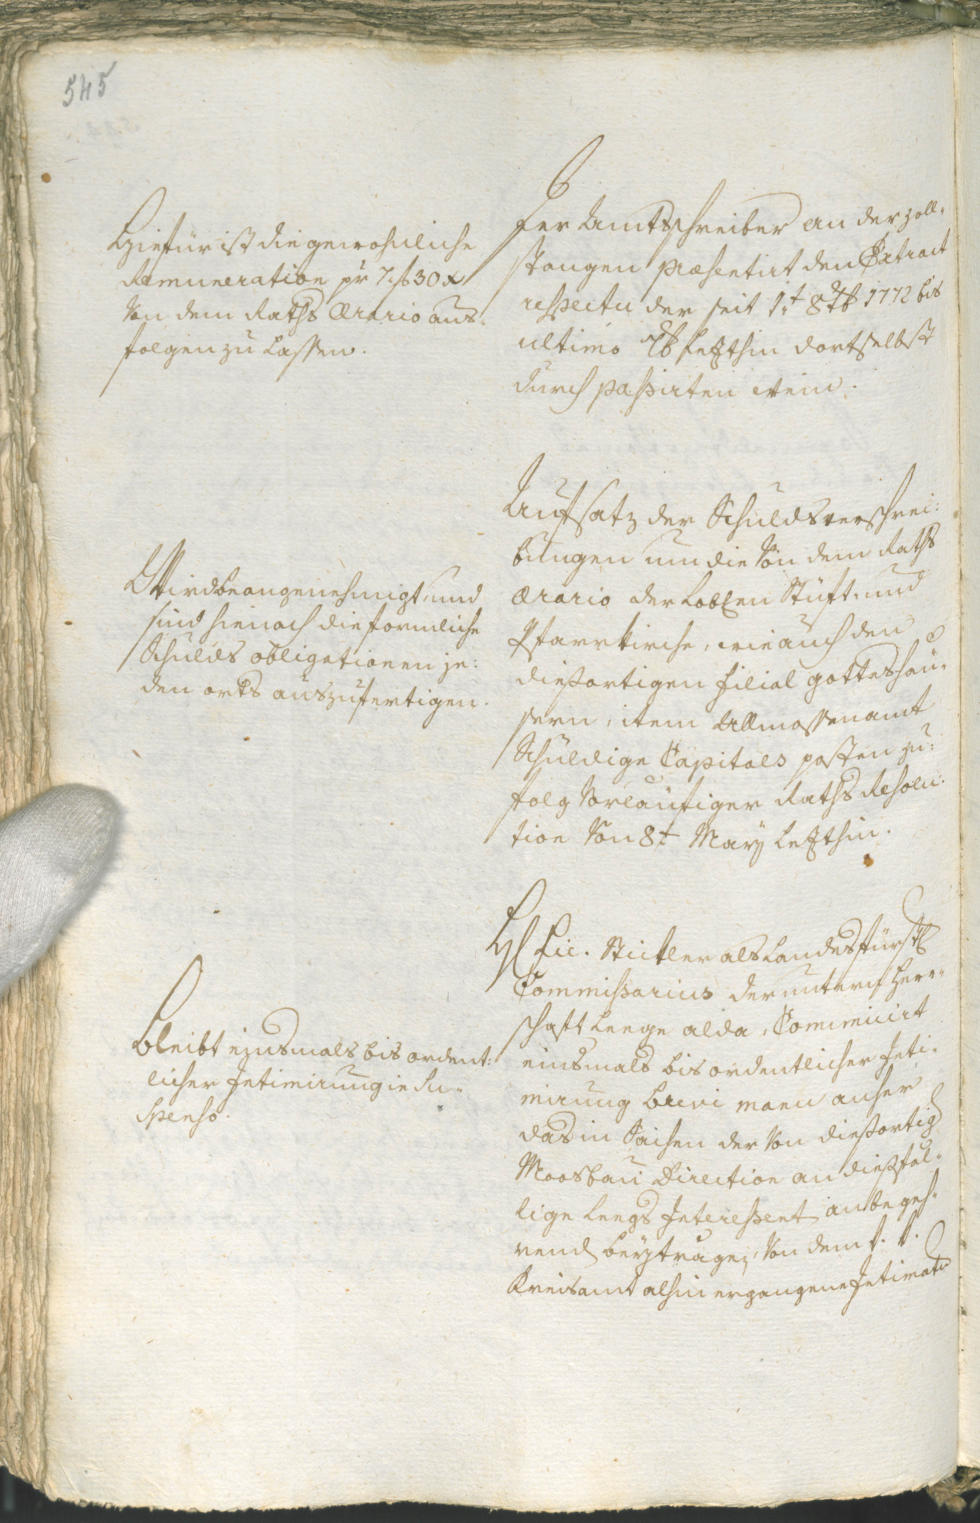 545
Hiefür ist die gewohnliche
Remuneration pr 7 f 30 x
Von dem Raths Ærario aus-
folgen zu Lassen.
Der Ambtschreiber an der zoll-
stangen præsentirt den Extract
respectu der seit 1.t 8tb 1772 bis
ultimo 7b lezthin dortselbst
durch passirten wein.
Wird beangenehmigt, und
sind hienach die formliche
Schulds obligationen je-
den orts auszufertigen.
Aufsatz der Schuldsverschrei-
bungen um die Von dem Raths
Ærario der Lobl.en Stüft- und
Pfarrkirche, wie auch den
diesortigen filial gotteshäu-
sern, item Allmossenamt
Schuldige Capitals posten zu-
folg Vorläufiger Raths Resolu-
tion Von 8.t Mary lezthin.
Bleibt einsmals bis ordent-
licher Intimirung in Su-
spenso.
H Lic. Stickler als Landesfürstl
Commissarius der unteren Herr-
schaft Leege alda, Com̅unicirt
einsmals bis ordentlicher Inti-
mirung brevi manu anher
das in Sachen der Von diesortig
Moosbau Direction an diesfäl-
lige Leegs Interessent anbegeh-
rend beytrage, Von dem t. t.
Kreisamt alhin ergangene Intimatu